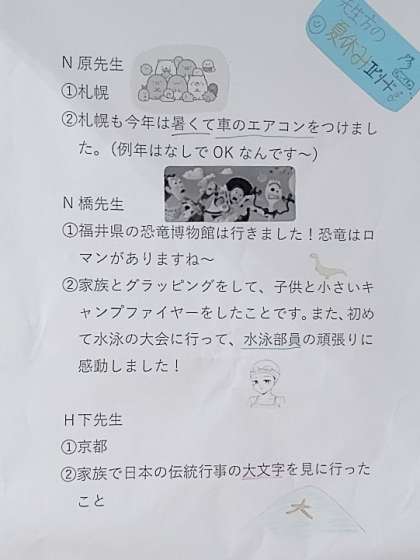 先生方の
夏休みエピソード
N 原先生
①札幌
②札幌も今年は暑くて車のエアコンをつけまし
た。（例年はなしで OK なんです～）
N 橋先生
①福井県の恐竜博物館は行きました！恐竜はロ
マンがありますね～
②家族とグラッピングをして、子供と小さいキ
ャンプファイヤーをしたことです。また、初め
て水泳の大会に行って、水泳部員の頑張りに
感動しました！
H 下先生
①京都
②家族で日本の伝統行事の大文字を見に行った
こと
大